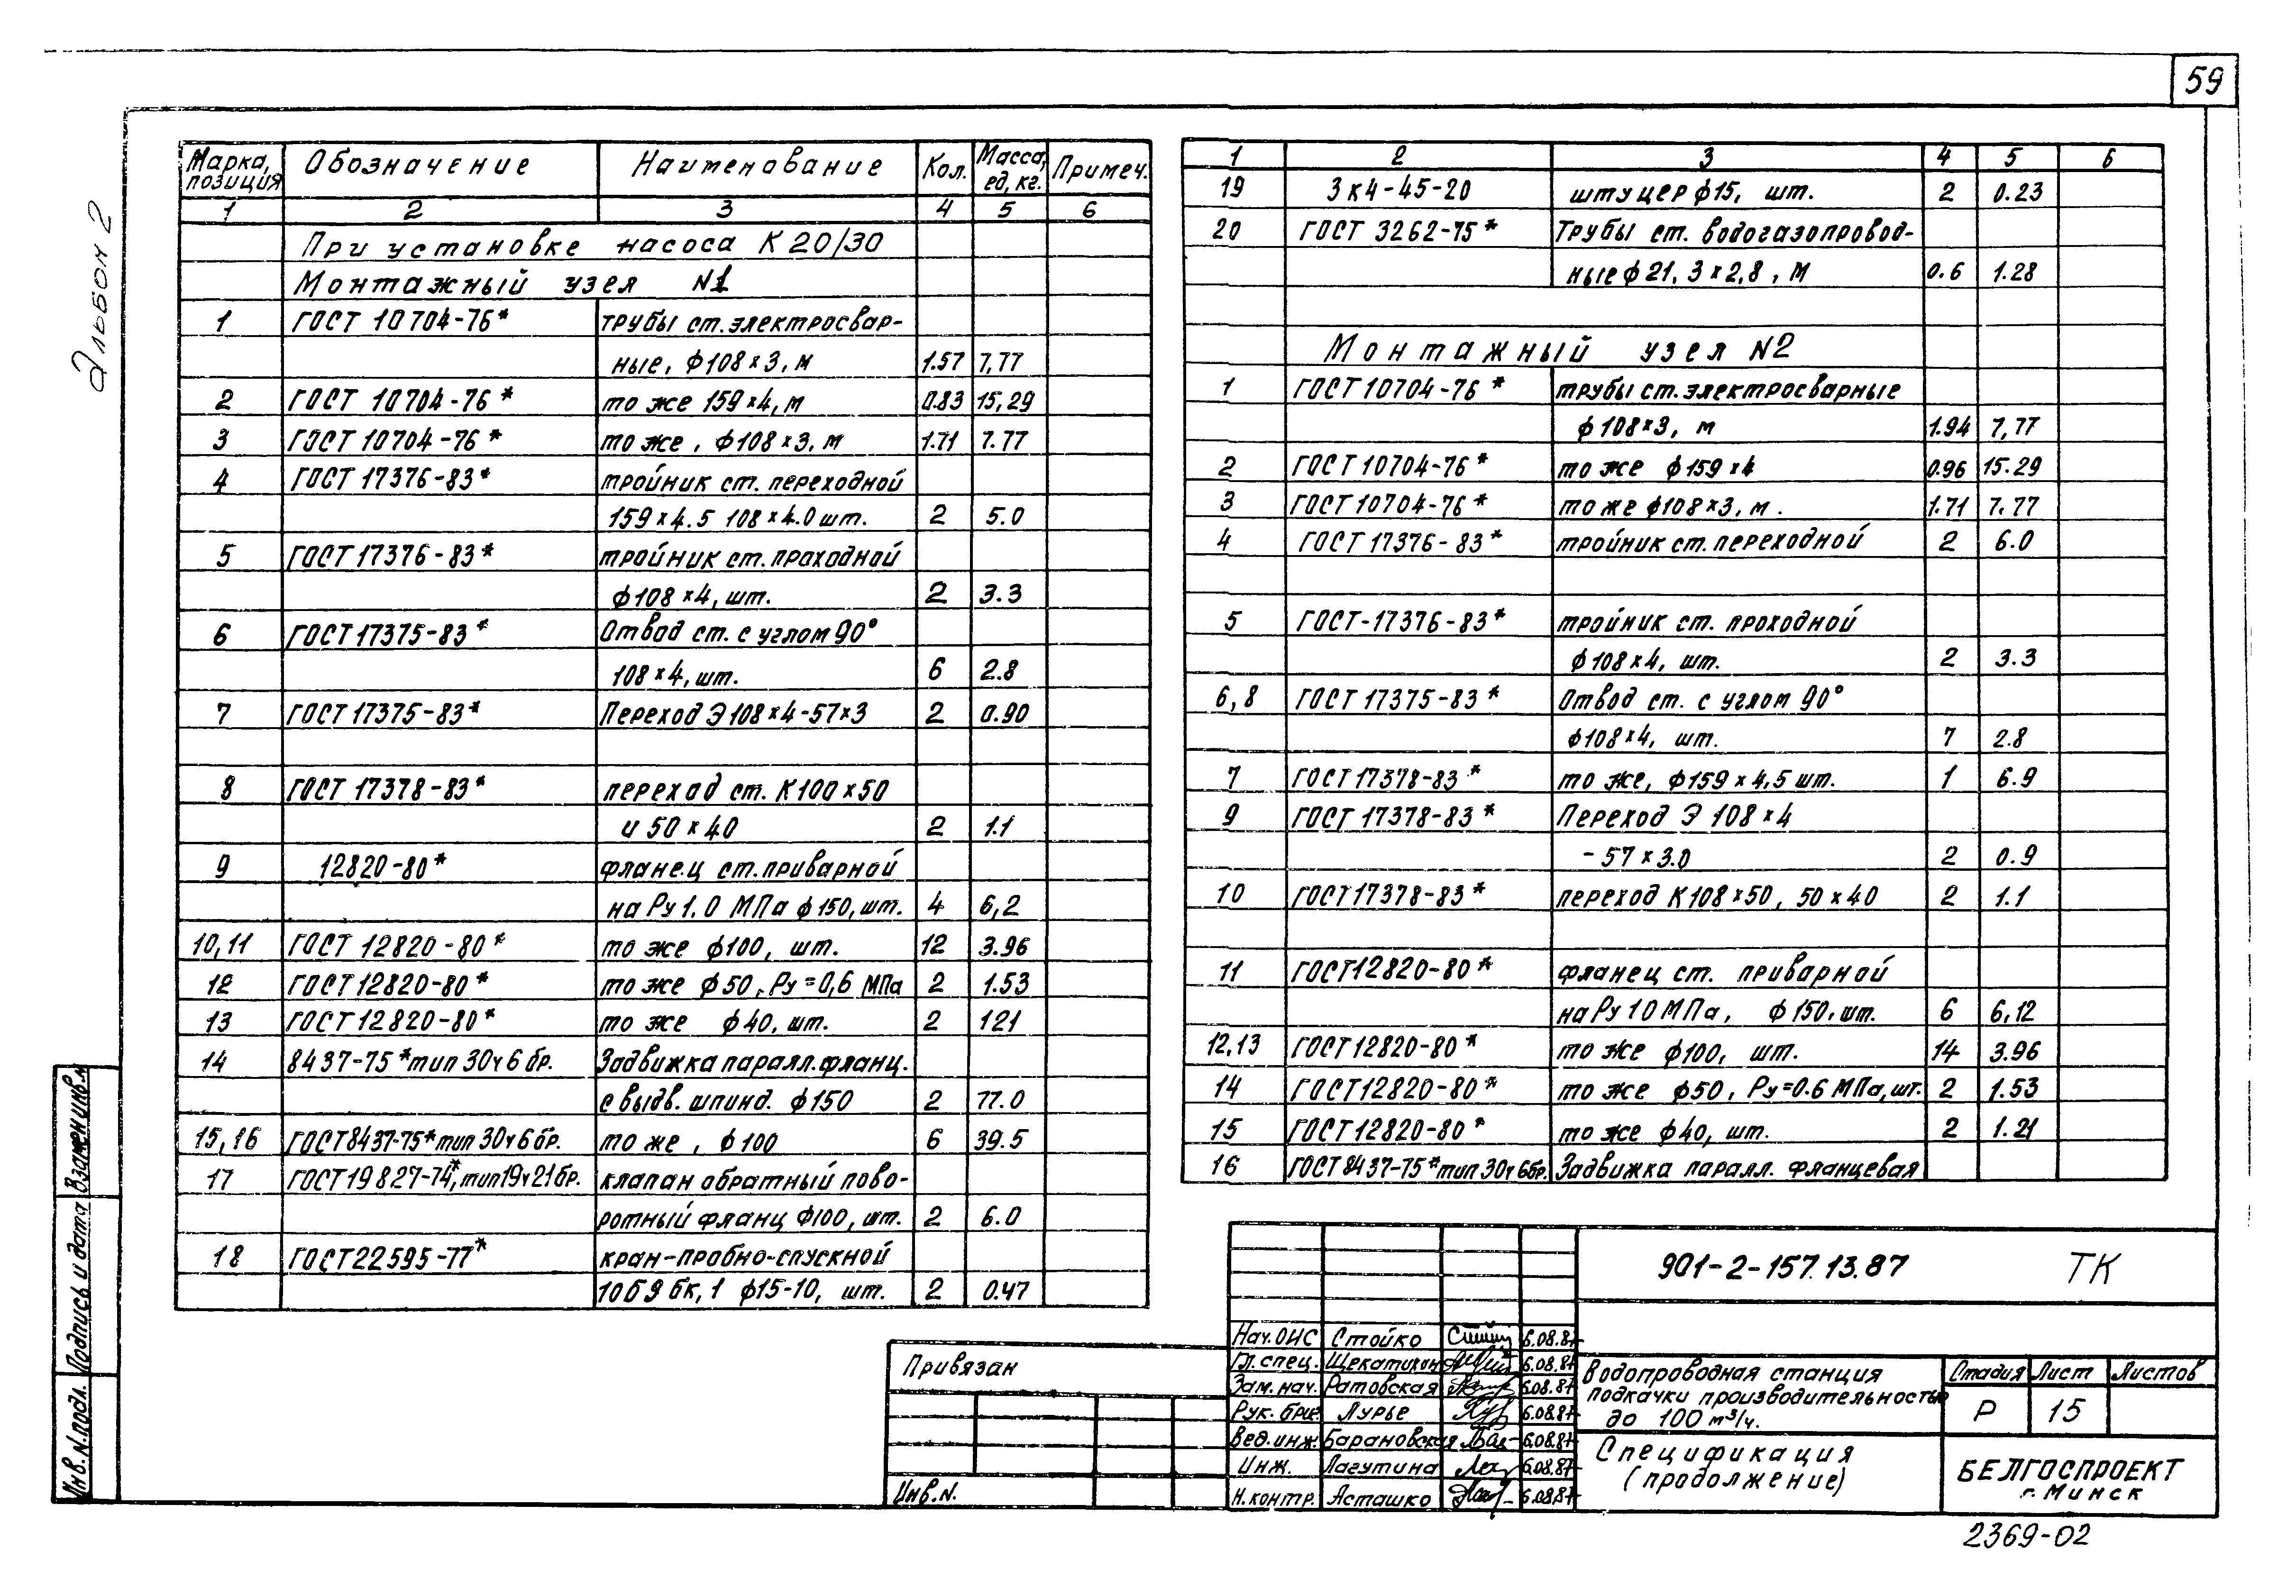 59
Альбом 2
Марка, позиция Обозначение Наименование Кол. Масса, ед, кг. Примеч.
1 2 3 4 5 6
При установке насоса К 20/30
Монтажный узел N1
1 ГОСТ 10704-76* трубы ст. электросвар-
ные, ф108×3, м 1.57 7,77
2 ГОСТ 10704-76* то же 159×4, м 0.83 15,29
3 ГОСТ 10704-76* то же, ф108×3, м 1.71 7.77
4 ГОСТ 17376-83* тройник ст. переходной
159×4.5 108×4.0 шт. 2 5.0
5 ГОСТ 17376-83* тройник ст. проходной
ф108×4, шт. 2 3.3
6 ГОСТ 17375-83* Отвод ст. с углом 90°
108×4, шт. 6 2.8
7 ГОСТ 17375-83* Переход Э 108×4-57×3 2 0.90
8 ГОСТ 17378-83* переход ст. К100×50
и 50×40 2 1.1
9 12820-80* фланец ст. приварной
на Ру 1.0 МПа ф150, шт. 4 6,2
10,11 ГОСТ 12820-80* то же ф100, шт. 12 3.96
12 ГОСТ 12820-80* то же ф50, Ру=0,6 МПа 2 1.53
13 ГОСТ 12820-80* то же ф40, шт. 2 121
14 8437-75* тип 30ч6бр. Задвижка паралл. фланц.
с выдв. шпинд. ф150 2 77.0
15,16 ГОСТ 8437-75* тип 30ч6бр. то же, ф100 6 39.5
17 ГОСТ 19827-74*, тип 19ч21бр. клапан обратный пово-
ротный фланц ф100, шт. 2 6.0
18 ГОСТ 22595-77* кран-пробно-спускной
10б9бк,1 ф15-10, шт. 2 0.47
1 2 3 4 5 6
19 3к4-45-20 штуцер ф15, шт. 2 0.23
20 ГОСТ 3262-75* Трубы ст. водогазопровод-
ные ф21,3×2,8, м 0.6 1.28
Монтажный узел N2
1 ГОСТ 10704-76* трубы ст. электросварные
ф108×3, м 1.94 7,77
2 ГОСТ 10704-76* то же ф159×4 0.96 15.29
3 ГОСТ 10704-76* то же ф108×3, м. 1.71 7.77
4 ГОСТ 17376-83* тройник ст. переходной 2 6.0
5 ГОСТ-17376-83* тройник ст. проходной
ф108×4, шт. 2 3.3
6,8 ГОСТ 17375-83* Отвод ст. с углом 90°
ф108×4, шт. 7 2.8
7 ГОСТ 17378-83* то же, ф159×4,5 шт. 1 6.9
9 ГОСТ 17378-83* Переход Э 108×4
-57×3.0 2 0.9
10 ГОСТ 17378-83* переход К108×50, 50×40 2 1.1
11 ГОСТ 12820-80* фланец ст. приварной
на Ру 10 МПа, ф150, шт. 6 6,12
12,13 ГОСТ 12820-80* то же ф100, шт. 14 3.96
14 ГОСТ 12820-80* то же ф50, Ру=0.6 МПа, шт. 2 1.53
15 ГОСТ 12820-80* то же ф40, шт. 2 1.21
16 ГОСТ 8437-75* тип 30ч6бр. Задвижка паралл. фланцевая
Взамен инв.N
Подпись и дата
Инв.N.подл.
Привязан
Инв.N.
901-2-157.13.87 ТК
Нач.ОИС Стойко 6.08.87
Гл.спец. Щекатихин 6.08.87
Зам.нач. Ратовская 6.08.87
Рук.бриг. Лурье 6.08.87
Вед.инж. Барановская 6.08.87
Инж. Лагутина 6.08.87
Н.контр. Асташко 6.08.87
Водопроводная станция
подкачки производительностью
до 100 м³/ч.
Стадия Лист Листов
Р 15
Спецификация
(продолжение)
БЕЛГОСПРОЕКТ
г. Минск
2369-02